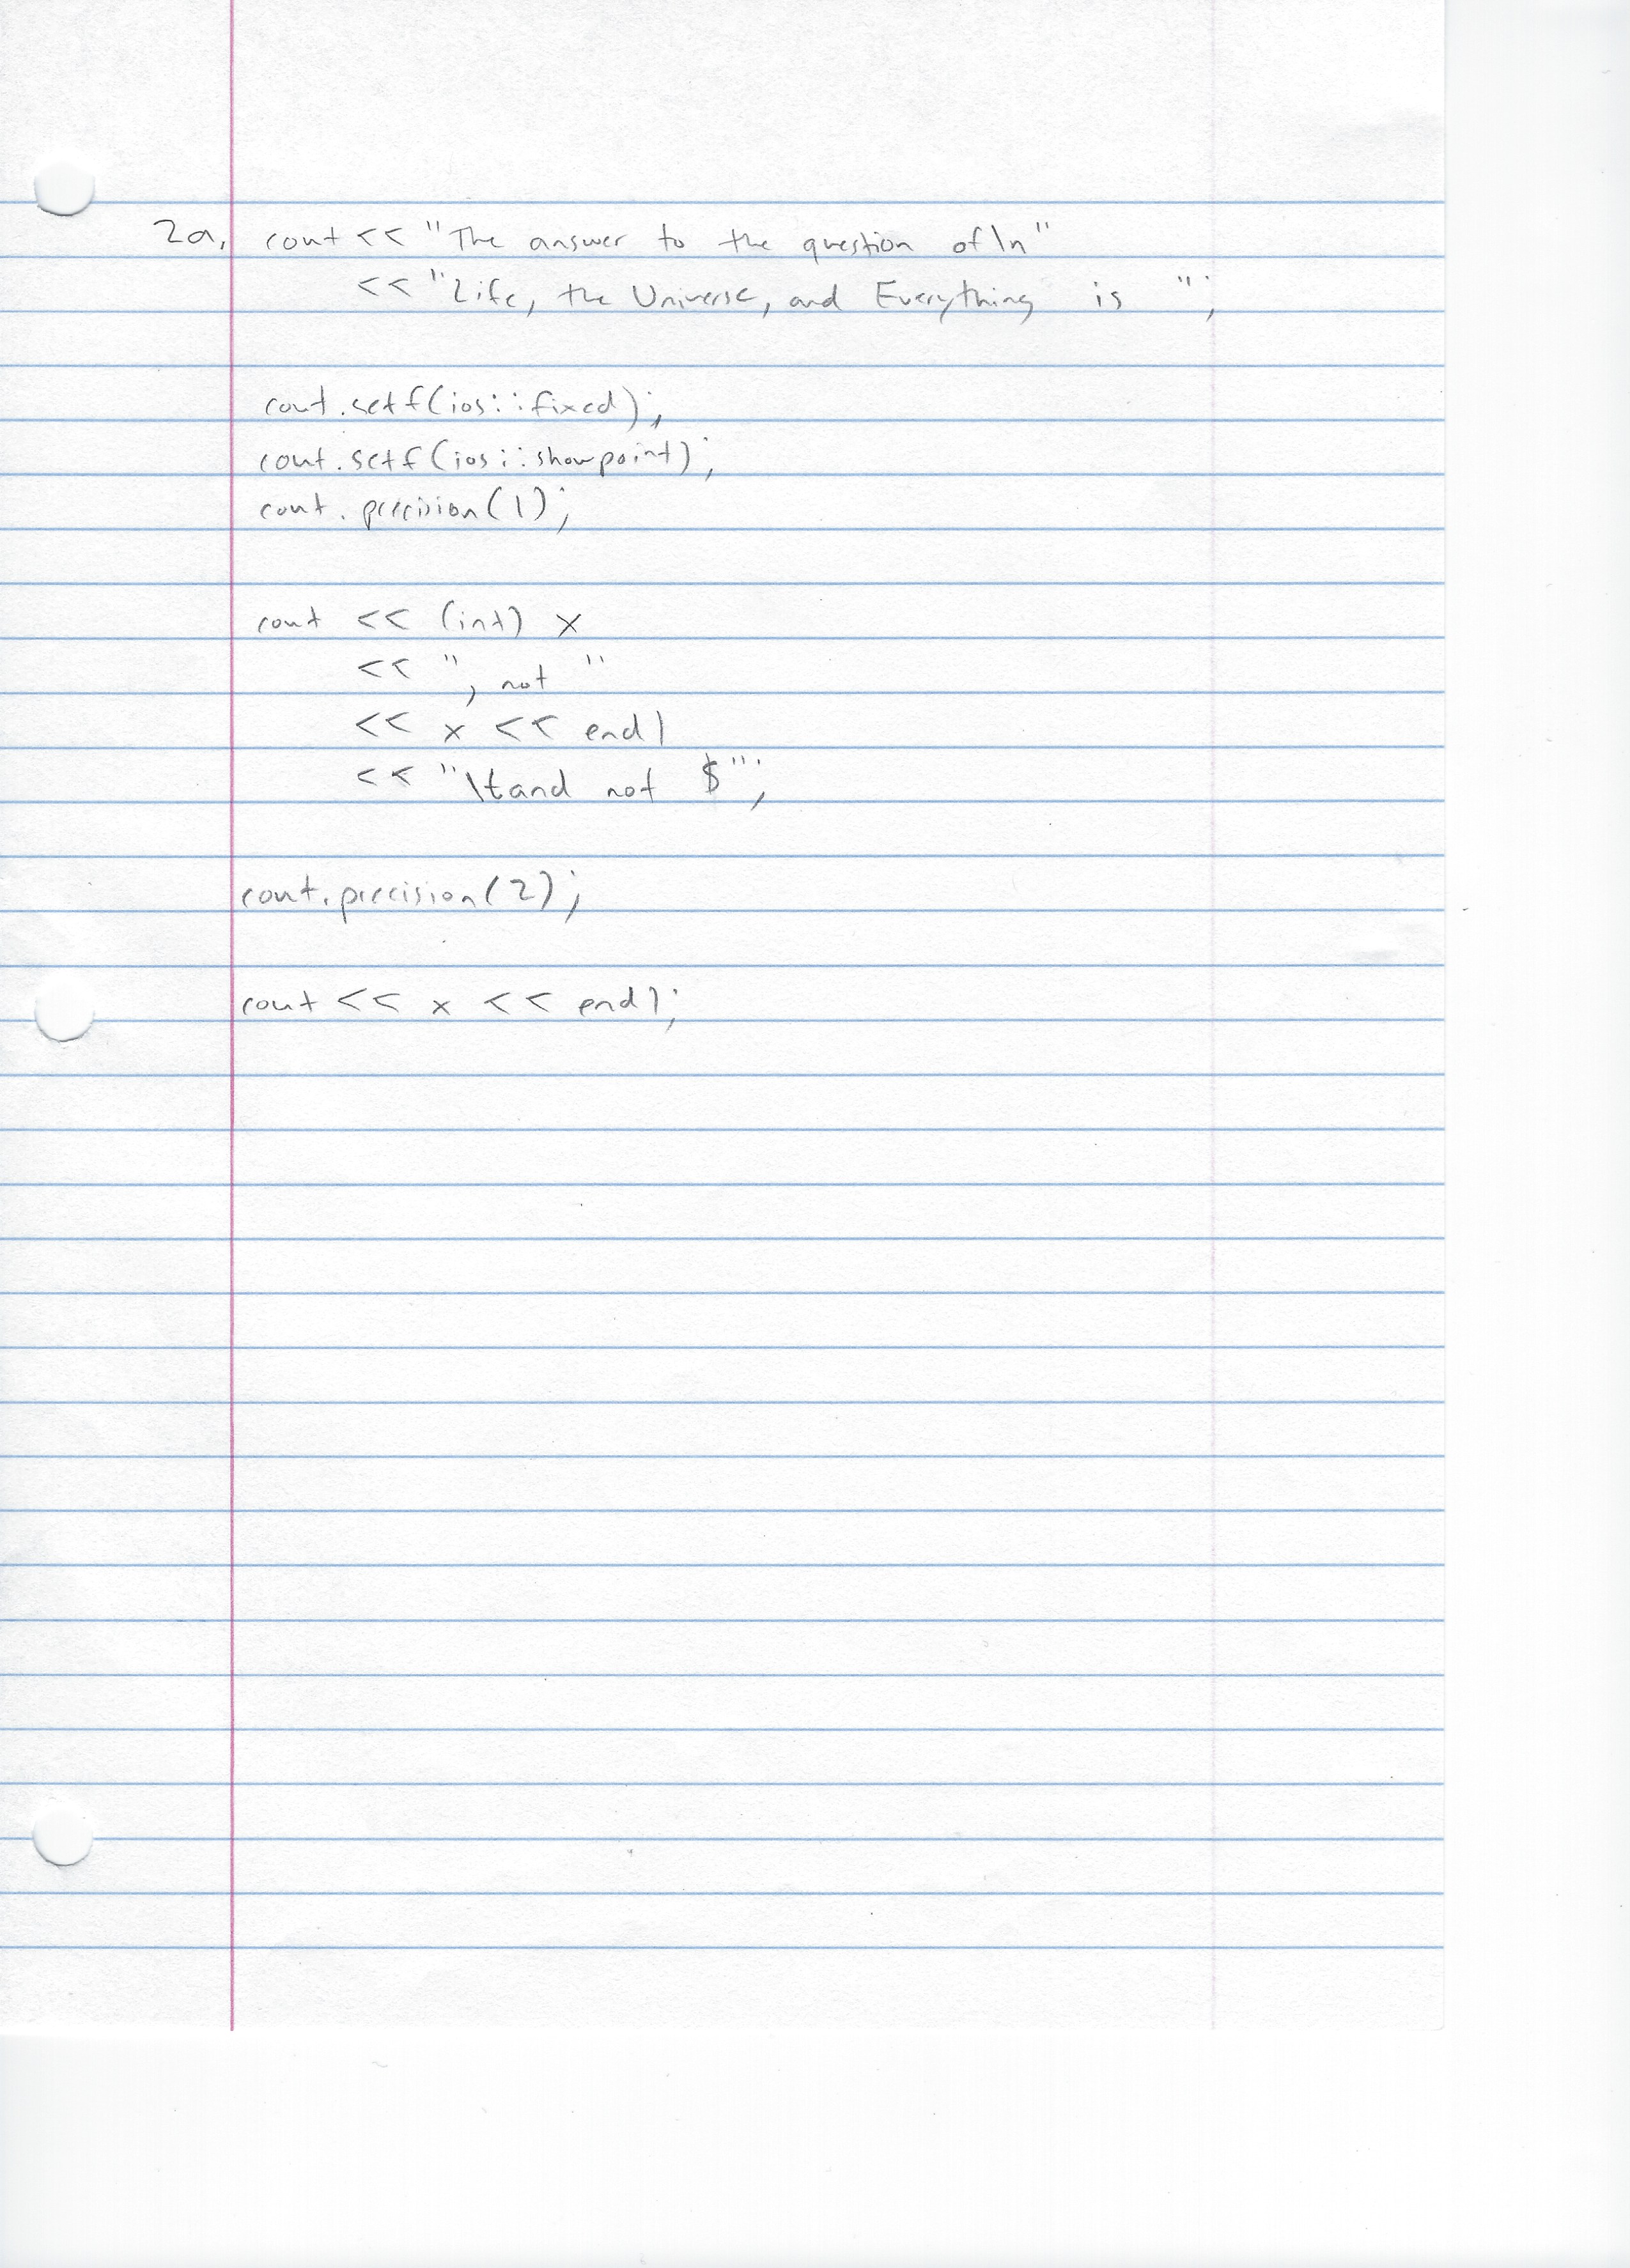 2a. cout << "The answer to the question of\n"
<< "Life, the Universe, and Everything is ";
cout.setf(ios::fixed);
cout.setf(ios::showpoint);
cout.precision(1);
cout << (int) x
<< ", not "
<< x << endl
<< "\tand not $";
cout.precision(2);
cout << x << endl;